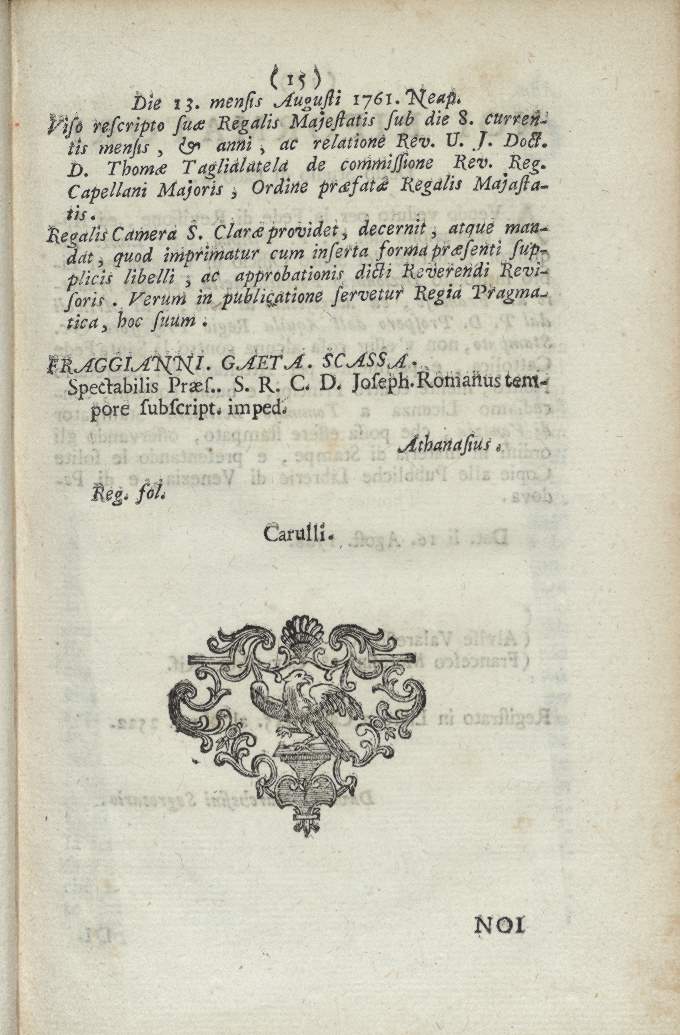 (15)
Die 13. mensis Augusti 1761. Neap.
Viso rescripto suæ Regalis Majestatis sub die 8. curren-
tis mensis, & anni, ac relatione Rev. U. J. Doct.
D. Thomæ Taglialatela de commissione Rev. Reg.
Capellani Majoris, Ordine præfatæ Regalis Majasta-
tis.
Regalis Camera S. Claræ providet, decernit, atque man-
dat, quod imprimatur cum inserta forma præsenti sup-
plicis libelli, ac approbationis dicti Reverendi Revi-
soris. Verum in publicatione servetur Regia Pragma-
tica, hoc suum.
FRAGGIANNI. GAETA. SCASSA.
Spectabilis Præs.. S. R. C. D. Joseph. Romanus tem-
pore subscript. imped.
Athanasius.
Reg. fol.
Carulli.
NOI